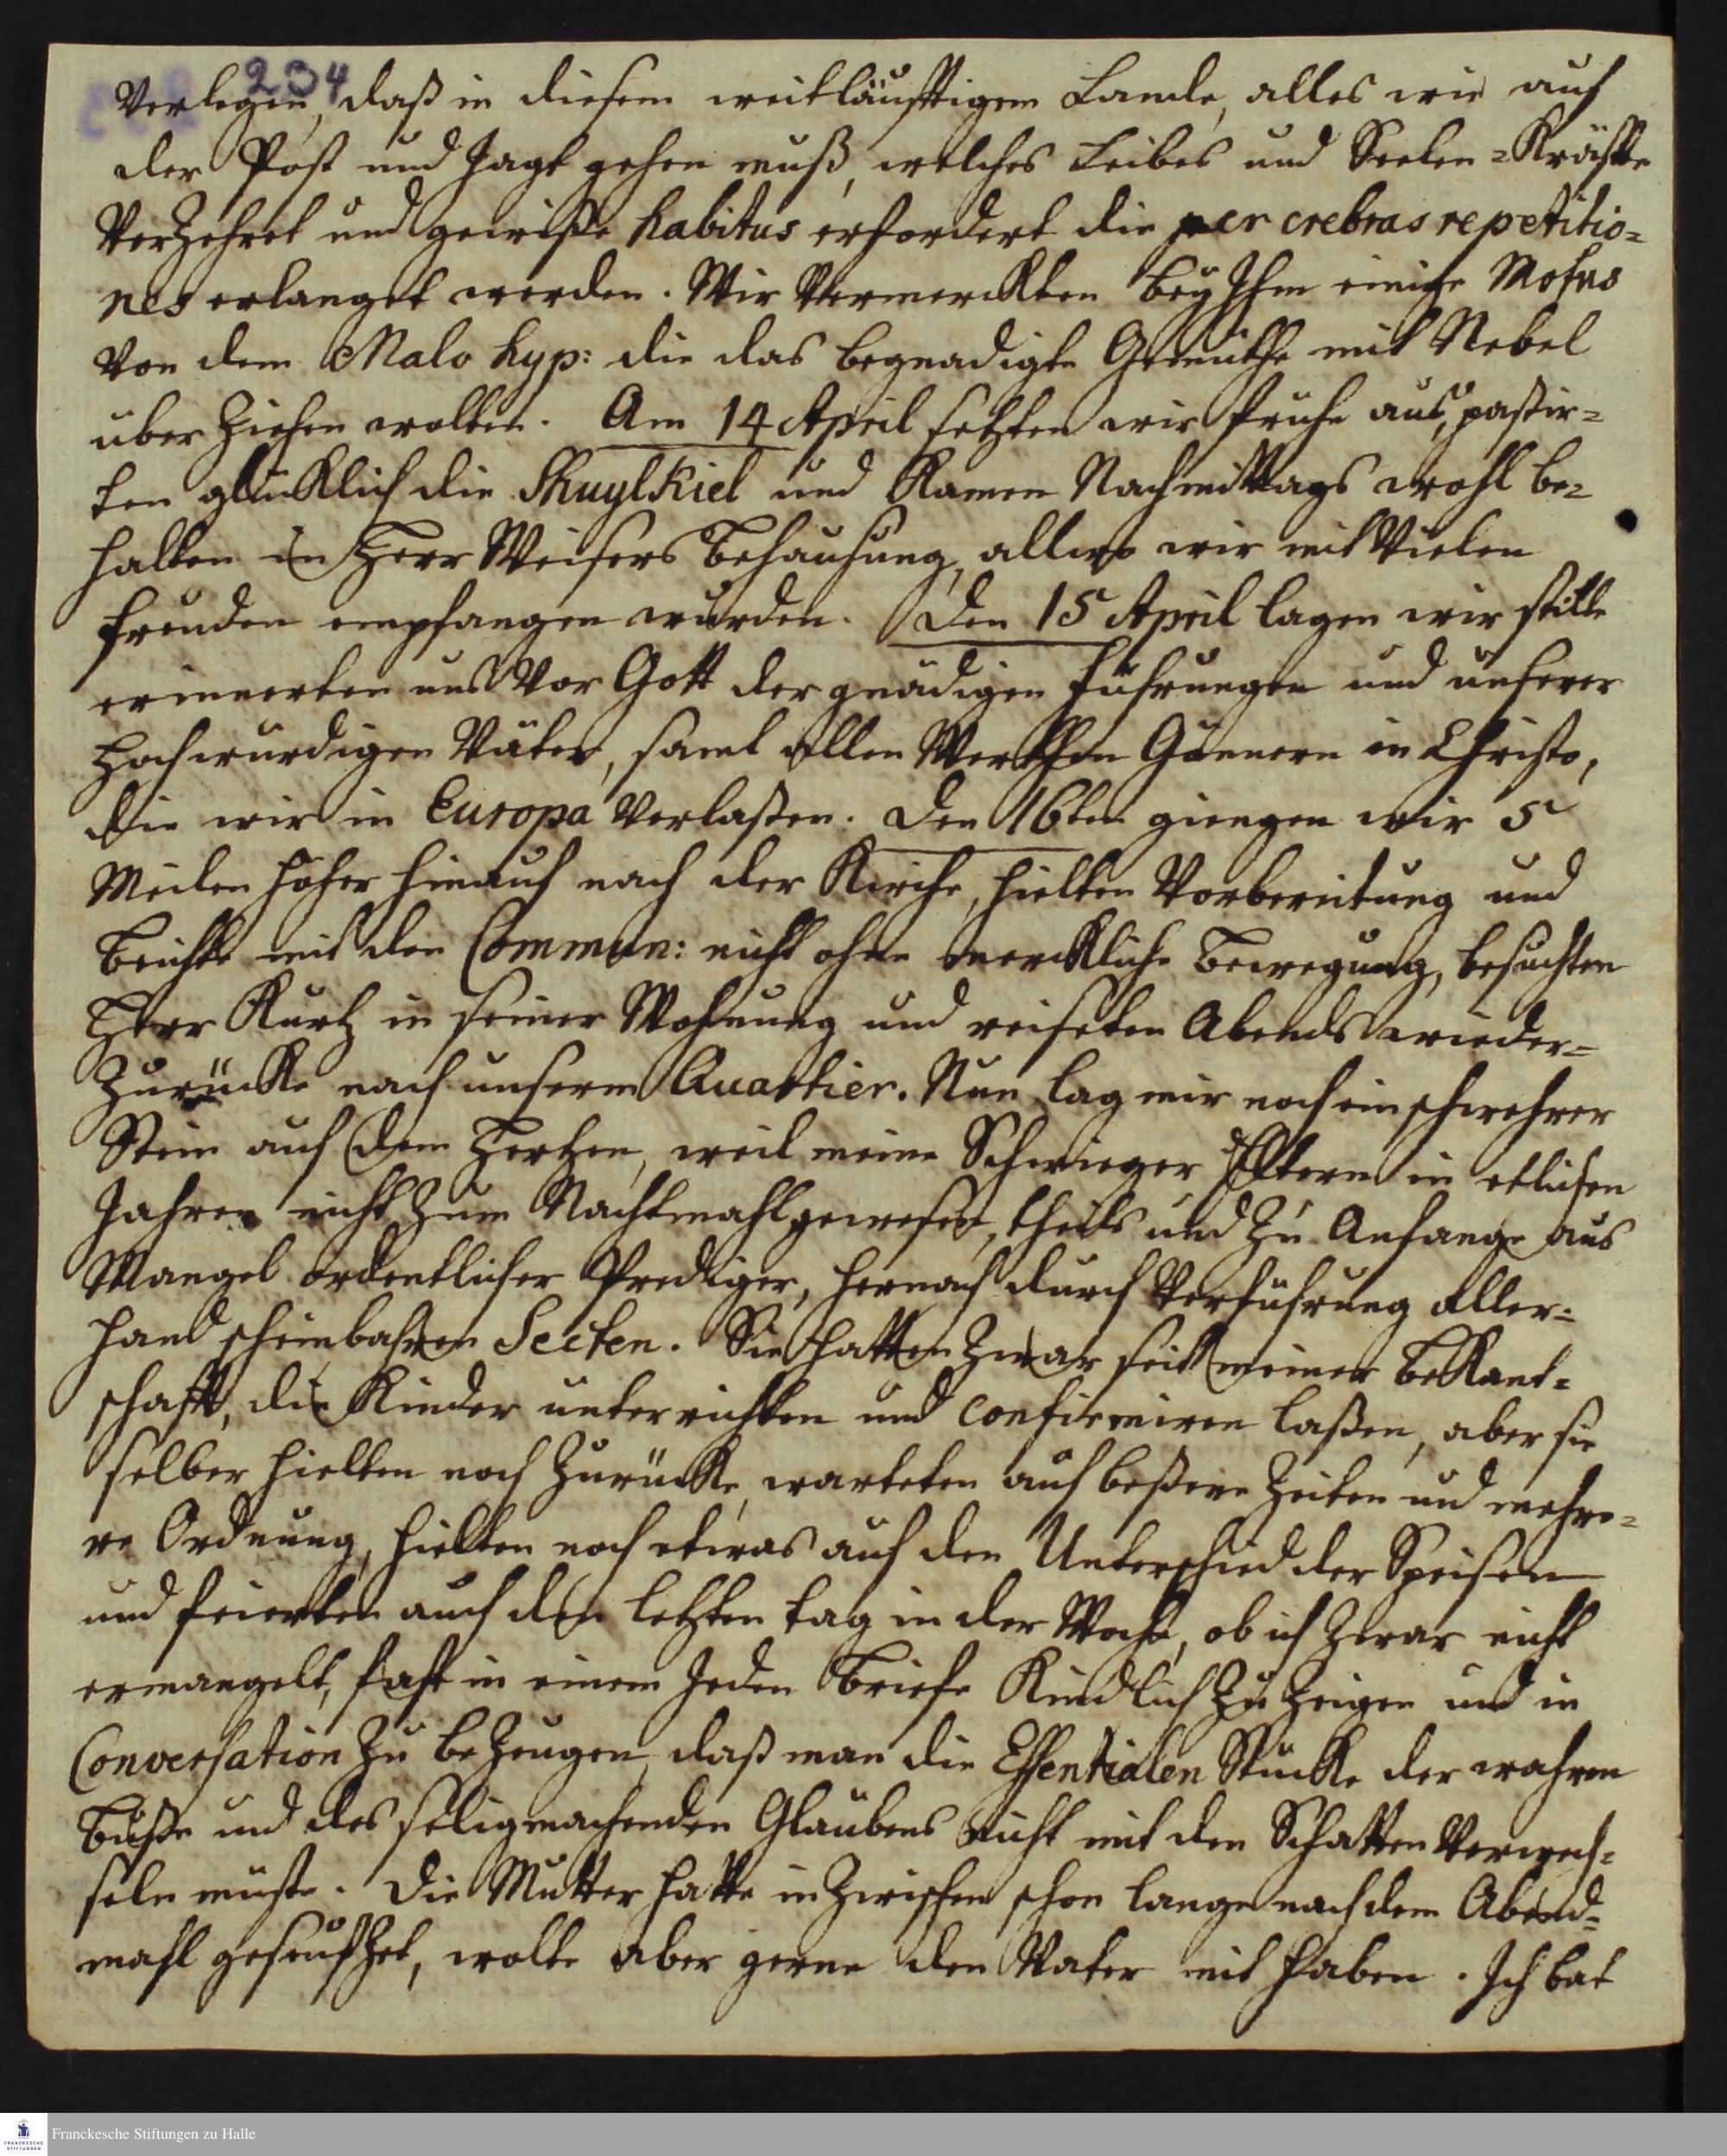 234
Verlegen, daß in diesem weitläufftigem Lande, alles wie auf
der Post und Jagt gehen muß, welches Leibes und Seelen-Kräffte
Verzehret und gewiße habitus erfordert die per crebras repetitio-
nes erlanget werden. Wir Vermerckten bey Ihm einige Motus
Von dem Malo hyp: die das begnadigte Gemüthe mit Nebel
über Ziehen wolten. Am 14 April setzten wir frühe aus, paßir-
ten glücklich die Skuylkiel und Kamen Nachmittags wohl be-
halten in Herr Weisers Behausung, allwo wir mit Vielen
freuden empfangen wurden. Den 15 April lagen wir stille
erinnerten uns Vor Gott der gnädigen führungen und unserer
Hochwürdigen Väter, samt allen Werthen Gönnern in Christo,
die wir in Europa Verlaßen. Den 16ten giengen wir 5
Meilen höher hinauf nach der Kirche, hielten Vorbereitung und
Beichte mit den Commun: nicht ohne merckliche Bewegung, besuchten
Herr Kurtz in seiner Wohnung und reiseten Abends wieder-
Zurücke nach unserm Quartier. Nun lag mir noch ein schwehrer
Stein auf dem Hertzen, weil meine Schwieger Eltern in etlichen
Jahren nicht Zum Nachtmahl gewesen, theils und Zu Anfange aus
Mangel ordentlicher Prediger, hernach durch Verführung aller-
hand scheinbahren Secten. Sie hatten Zwar seit meiner beKant-
schafft, die Kinder unterrichten und confirmiren laßen, aber sie
selber hielten noch Zurücke, warteten auf beßere Zeiten und mehre-
re Ordnung, hielten noch etwas auf den Unterschied der Speisen
und feierten auch den letzten tag in der Woche, ob ich Zwar nicht
ermangelt, fast in einem Jeden Briefe Kindlich Zu Zeigen und in
Conversation Zu beZeugen, daß man die Essentialen Stücke der wahren
Buße und des seligmachenden Glaubens nicht mit den Schatten Verwech-
seln müste. Die Mutter hatte in Zwischen schon lange nach dem Abend-
mahl geseuffZet, wolte aber gerne den Vater mit haben. Ich bat
FRANCKESCHE STIFTUNGEN
Franckesche Stiftungen zu Halle